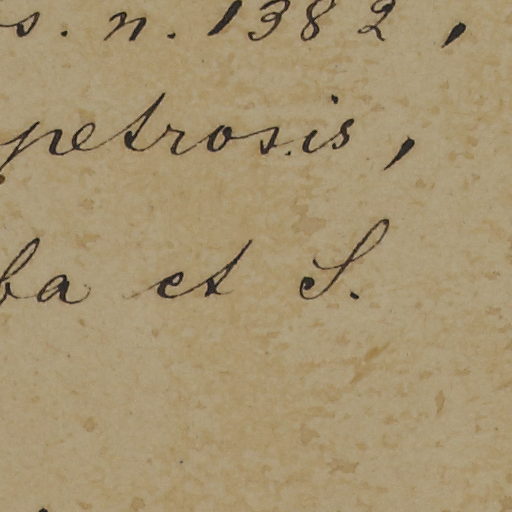 s. n. 1382,
petrosis,
ba et S.